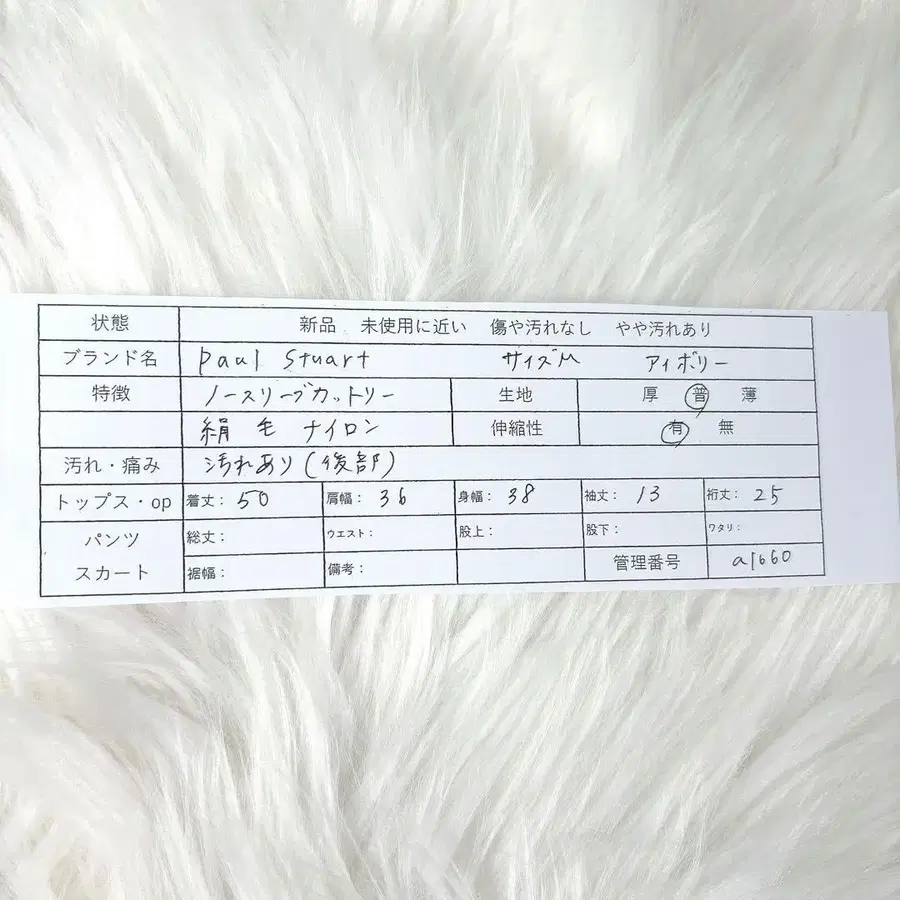 状態 新品 未使用に近い 傷や汚れなし やや汚れあり
ブランド名 Paul Stuart サイズM アイボリー
特徴 ノースリーブカットソー 生地 厚 普 薄
絹 毛 ナイロン 伸縮性 有 無
汚れ・痛み 汚れあり(後部)
トップス・op 着丈: 50 肩幅: 36 身幅: 38 袖丈: 13 裄丈: 25
パンツ 総丈: ウエスト: 股上: 股下: ワタリ:
スカート 裾幅: 備考: 管理番号 a1660